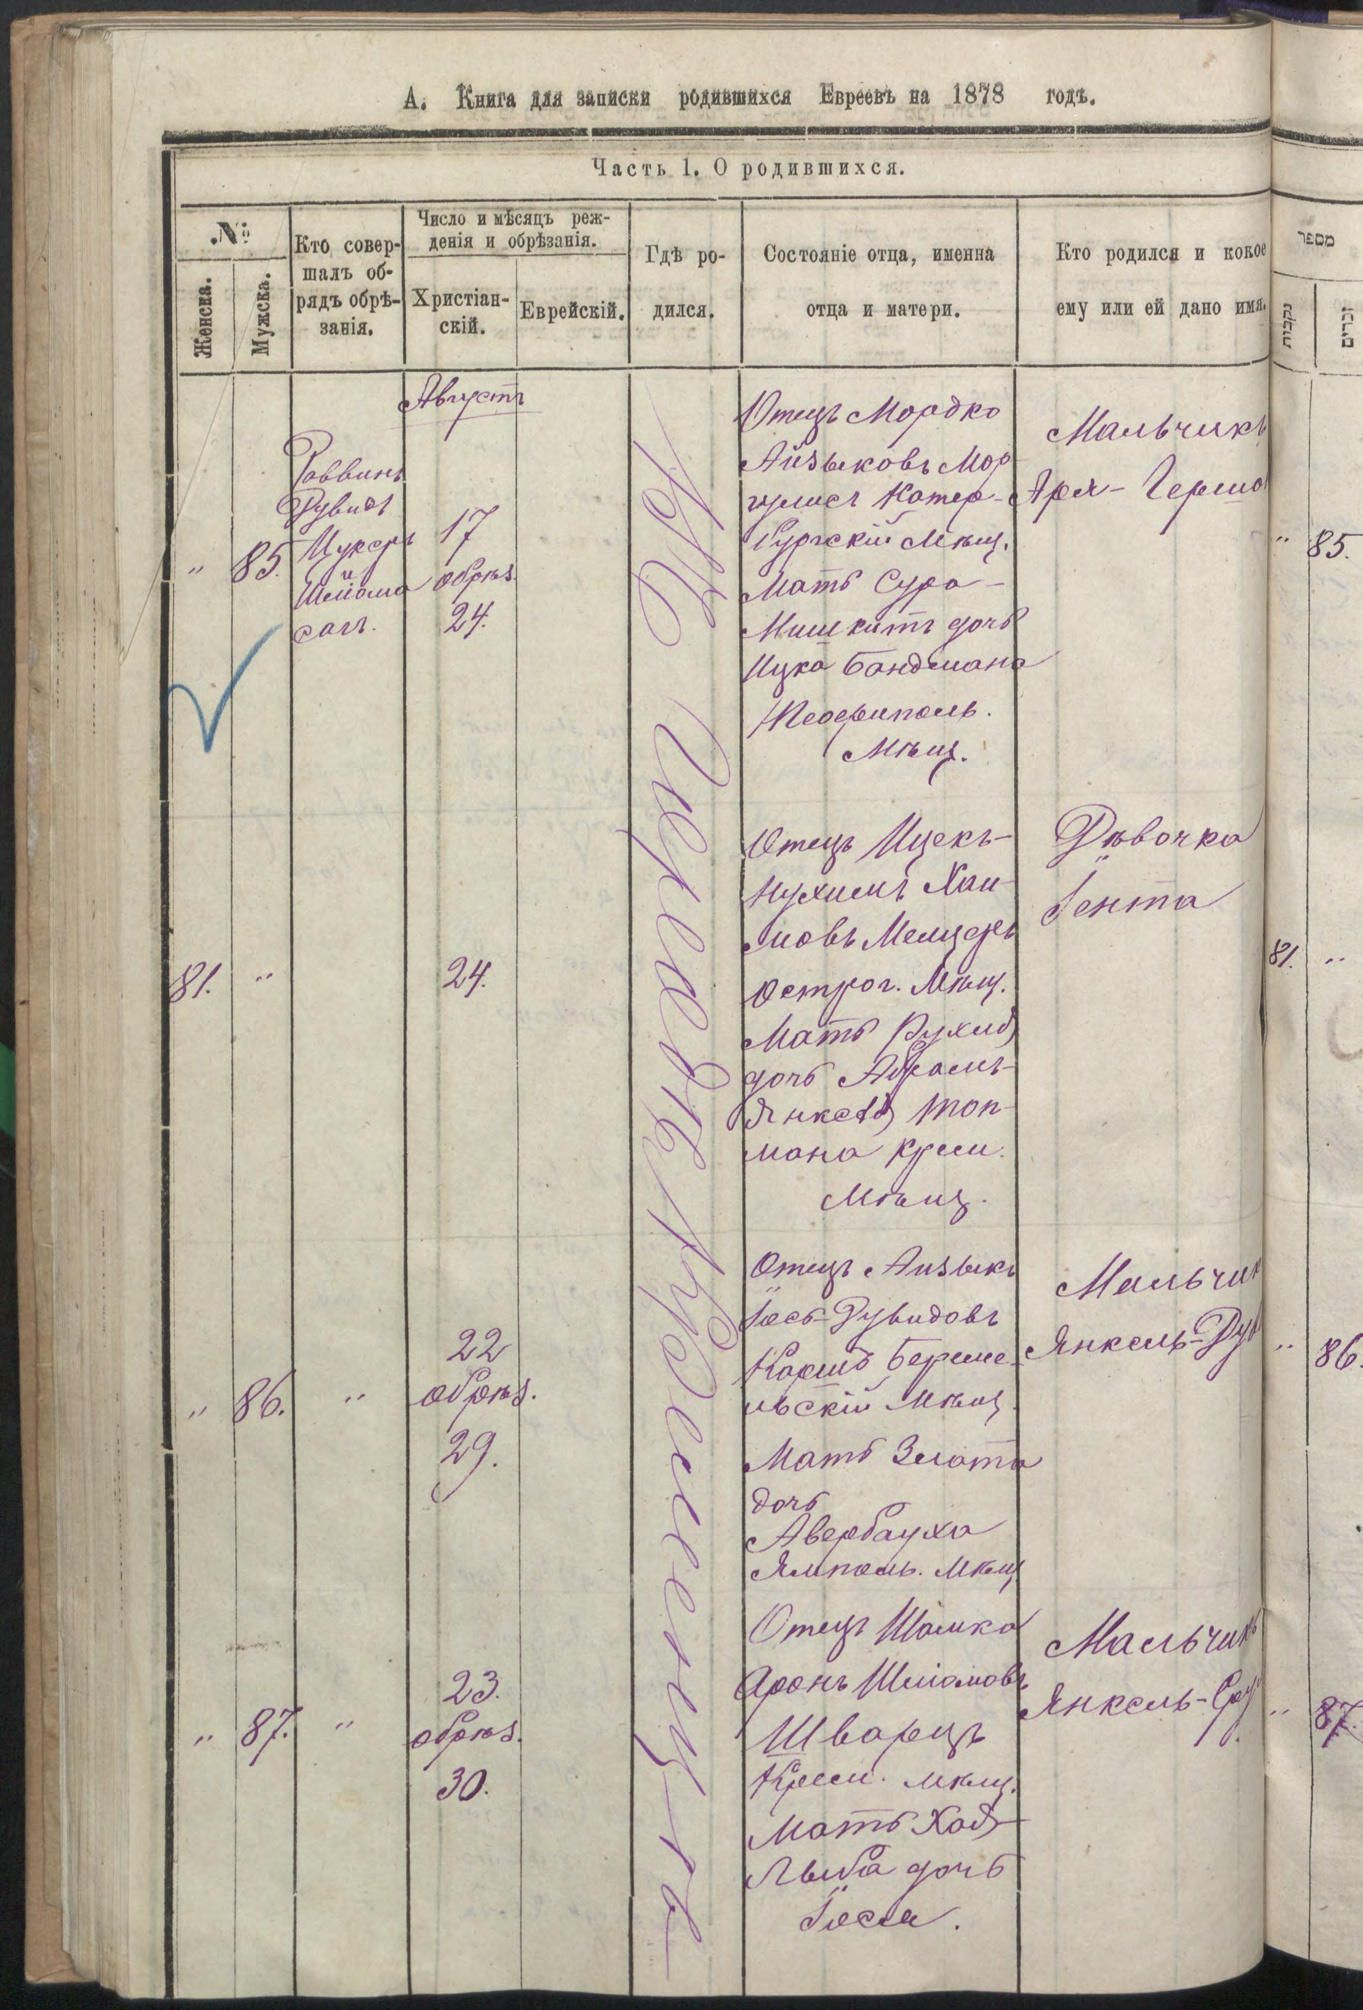 А. Книга для записки родившихся Евреевъ на 1878 годъ.
Часть 1. О родившихся.
№
Женска.
Мужска.
Кто совер-
шалъ об-
рядъ обрѣ-
занія.
Число и мѣсяцъ реж-
денія и обрѣзанія.
Христіан-
скій.
Еврейскій.
Гдѣ ро-
дился.
Состояніе отца, именна
отца и матери.
Кто родился и кокое
ему или ей дано имя.
מספר
נקבות
זכרים
Августъ
Въ
„ 85.
Раввинъ
Дувидъ
Цукеръ
и
Шлиома
17
обрѣз.
24.
Отецъ Мордко
Айзыковъ Мор
гулисъ Катер-
бургскій Мѣщ.
Мать Сура-
дочь
Ицка Бандмана
Теофиполь.
Мѣщ.
Мальчикъ
Аря-Гершо
„ 85.
81. „
24.
Отецъ Ицекъ-
Нухимъ Хаи-
мовъ Мелцеръ
Острог. Мѣщ.
Мать Рухля
дочь Абрамъ-
Янкеля
мана Крем.
Мѣщ.
Дѣвочка
Гента
81. „
„ 86. „
22
обрѣз.
29.
Отецъ Аизыкъ
Іось-Дувидовъ
Кориш Береме-
льскій Мѣщ.
Мать Злота
дочь
Авербауха
Ямполь. Мѣщ
Мальчик
Янкель-Дув
„ 86.
„ 87. „
23.
обрѣз.
30.
Отецъ Шамка
Аронъ Шліомовъ
Шварцъ
Крем. мѣщ.
Мать Хая-
Лыба дочь
Іося.
Мальчикъ
Янкель-Сру
„ 87.